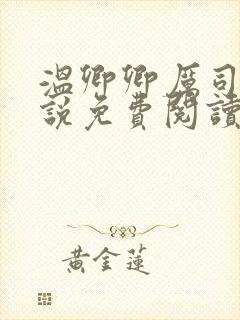 溫卿卿厲司
說免費閱讀
黃金蓮